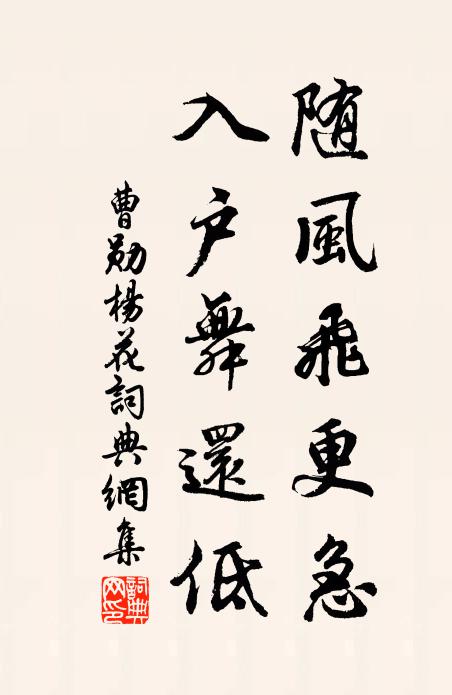 随風飛更急
入户舞還低
曹勛楊花詞典網集
詞典网印